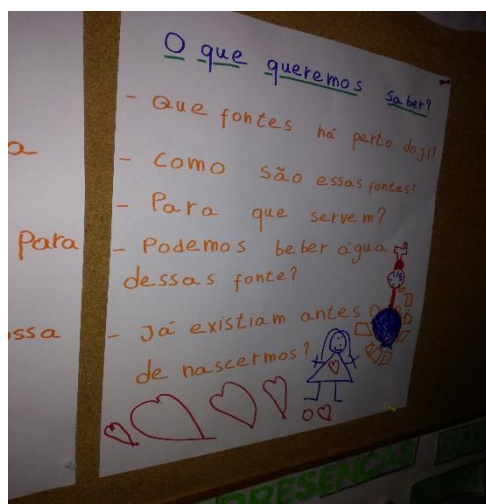 O que queremos saber?
- Que fontes há perto do JI?
- Como são essas fontes?
- Para que servem?
- Podemos beber água
dessas fonte?
- Já existiam antes
de nascermos?
a
Para
ossa
PRESENÇAS